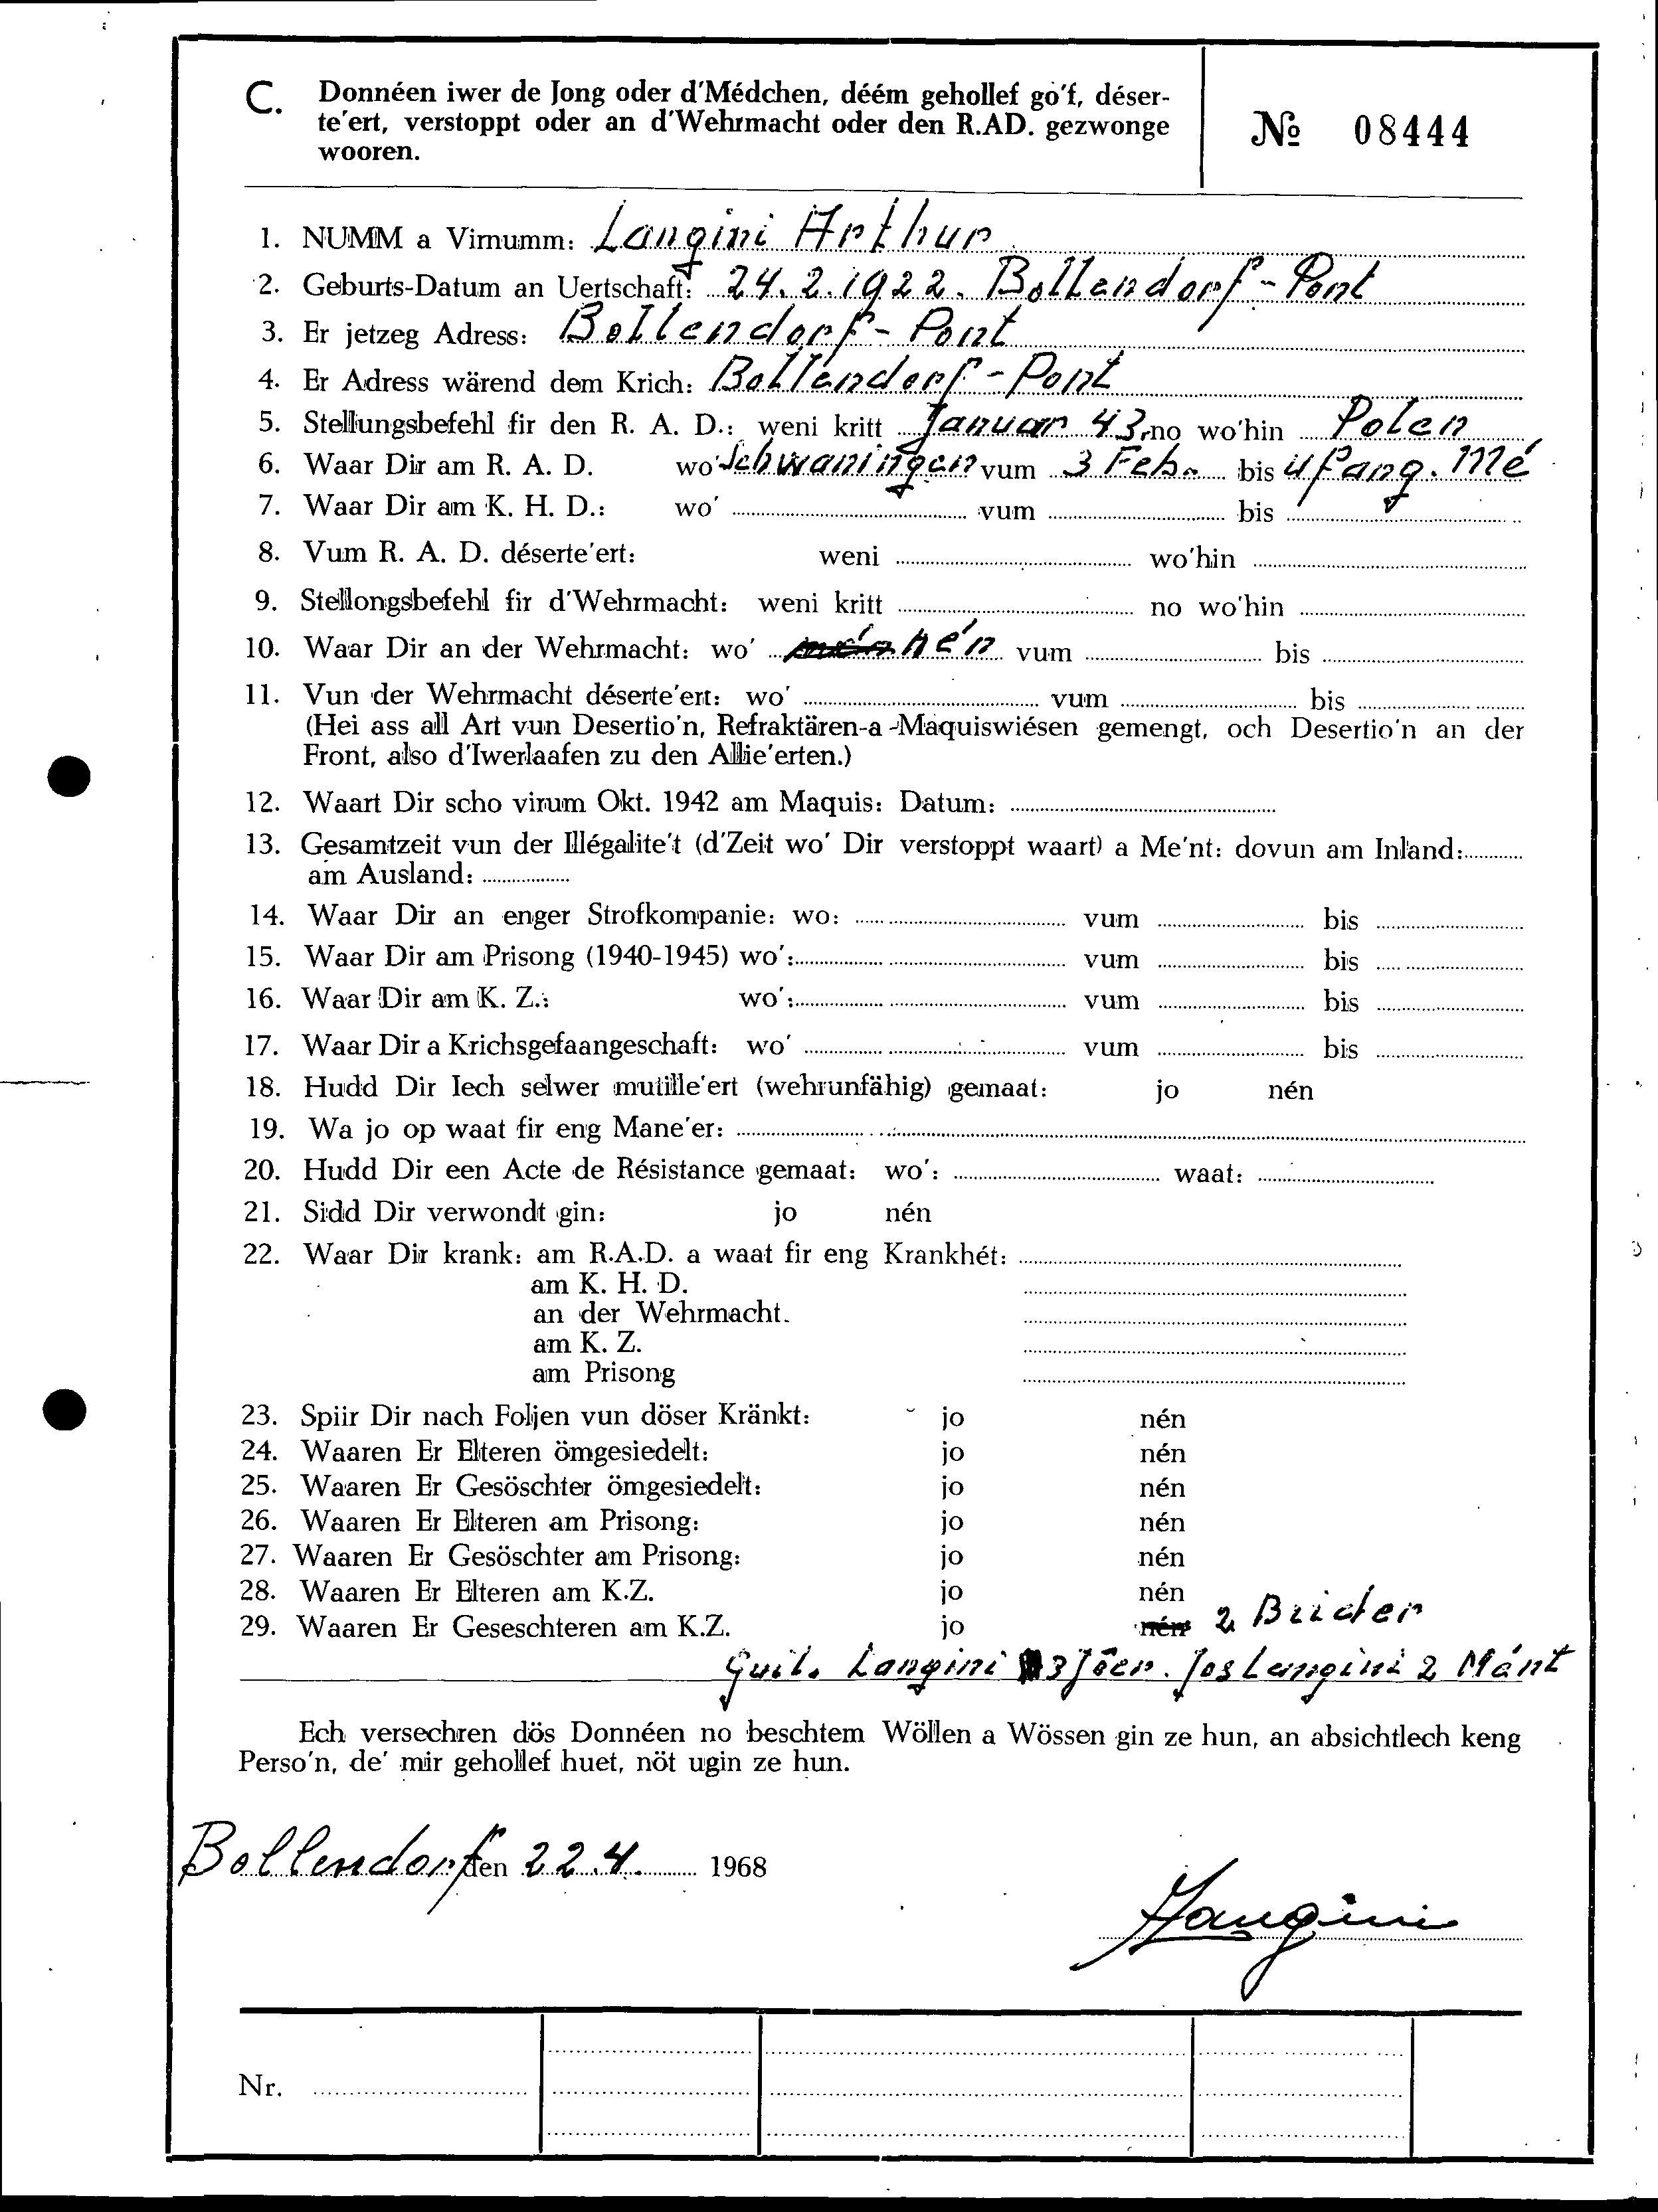 C. Donnéen iwer de Jong oder d'Médchen, déém gehollef go'f, déser-
te'ert, verstoppt oder an d'Wehrmacht oder den R.AD. gezwonge
wooren.
№ 08444
1. NUMM a Virnumm: Langini Arthur
2. Geburts-Datum an Uertschaft: 24.2.1922. Bollendorf-Pont
3. Er jetzeg Adress: Bollendorf-Pont
4. Er Adress wärend dem Krich: Bollendorf-Pont
5. Stellungsbefehl fir den R. A. D.: weni kritt Januar 43 no wo'hin Polen
6. Waar Dir am R. A. D. wo' Schwaningen vum 3 Feb. bis Ufang. Mé
7. Waar Dir am K. H. D.: wo' vum bis
8. Vum R. A. D. déserte'ert: weni wo'hin
9. Stellongsbefehl fir d'Wehrmacht: weni kritt no wo'hin
10. Waar Dir an der Wehrmacht: wo' nén vum bis
11. Vun der Wehrmacht déserte'ert: wo' vum bis
(Hei ass all Art vun Desertio'n, Refraktären-a-Maquiswiésen gemengt, och Desertio'n an der
Front, also d'Iwerlaafen zu den Allie'erten.)
12. Waart Dir scho virum Okt. 1942 am Maquis: Datum:
13. Gesamtzeit vun der Illégalite't (d'Zeit wo' Dir verstoppt waart) a Me'nt: dovun am Inland:
am Ausland:
14. Waar Dir an enger Strofkompanie: wo: vum bis
15. Waar Dir am Prisong (1940-1945) wo': vum bis
16. Waar Dir am K. Z.: wo': vum bis
17. Waar Dir a Krichsgefaangeschaft: wo' vum bis
18. Hudd Dir Iech selwer mutille'ert (wehrunfähig) gemaat: jo nén
19. Wa jo op waat fir eng Mane'er:
20. Hudd Dir een Acte de Résistance gemaat: wo': waat:
21. Sidd Dir verwondt gin: jo nén
22. Waar Dir krank: am R.A.D. a waat fir eng Krankhét:
am K. H. D.
an der Wehrmacht.
am K. Z.
am Prisong
23. Spiir Dir nach Foljen vun döser Kränkt: jo nén
24. Waaren Er Elteren ömgesiedelt: jo nén
25. Waaren Er Gesöschter ömgesiedelt: jo nén
26. Waaren Er Elteren am Prisong: jo nén
27. Waaren Er Gesöschter am Prisong: jo nén
28. Waaren Er Elteren am K.Z. jo nén
29. Waaren Er Geseschteren am K.Z. jo nén 2 Brider
Guil. Langini 3 Jöer. Jos Langini 2 Mánt
Ech versechren dös Donnéen no beschtem Wöllen a Wössen gin ze hun, an absichtlech keng
Perso'n, de' mir gehollef huet, nöt ugin ze hun.
Bollendorf den 22.4. 1968
Langini
Nr.